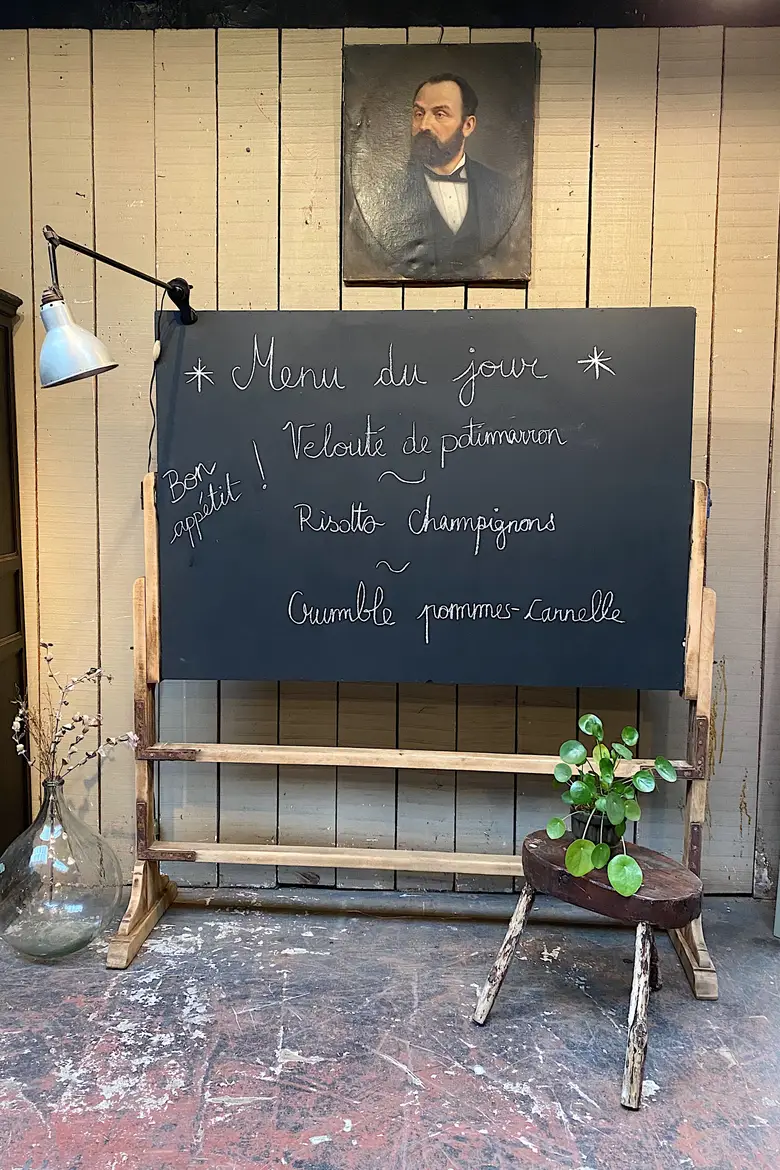 * Menu du jour *
Velouté de potimarron
~
Bon
appétit !
Risotto Champignons
~
Crumble pommes-Cannelle